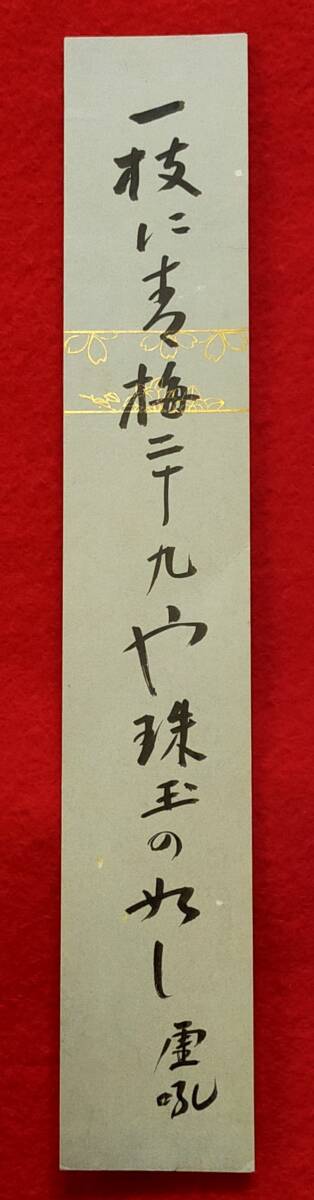 一枝に青梅二十九や珠玉の如し 虚吼